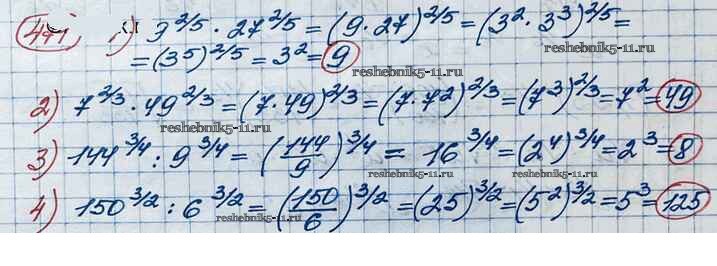 1) 9^2/5 · 27^2/5 = (9 · 27)^2/5 = (3^2 · 3^3)^2/5 =
= (3^5)^2/5 = 3^2 = 9
reshebnik5-11.ru
reshebnik5-11.ru
2) 7^2/3 · 49^2/3 = (7 · 49)^2/3 = (7 · 7^2)^2/3 = (7^3)^2/3 = 7^2 = 49
reshebnik5-11.ru
3) 144^3/4 : 9^3/4 = (144/9)^3/4 = 16^3/4 = (2^4)^3/4 = 2^3 = 8
reshebnik5-11.ru
4) 150^3/2 : 6^3/2 = (150/6)^3/2 = (25)^3/2 = (5^2)^3/2 = 5^3 = 125
reshebnik5-11.ru
reshebnik5-11.ru